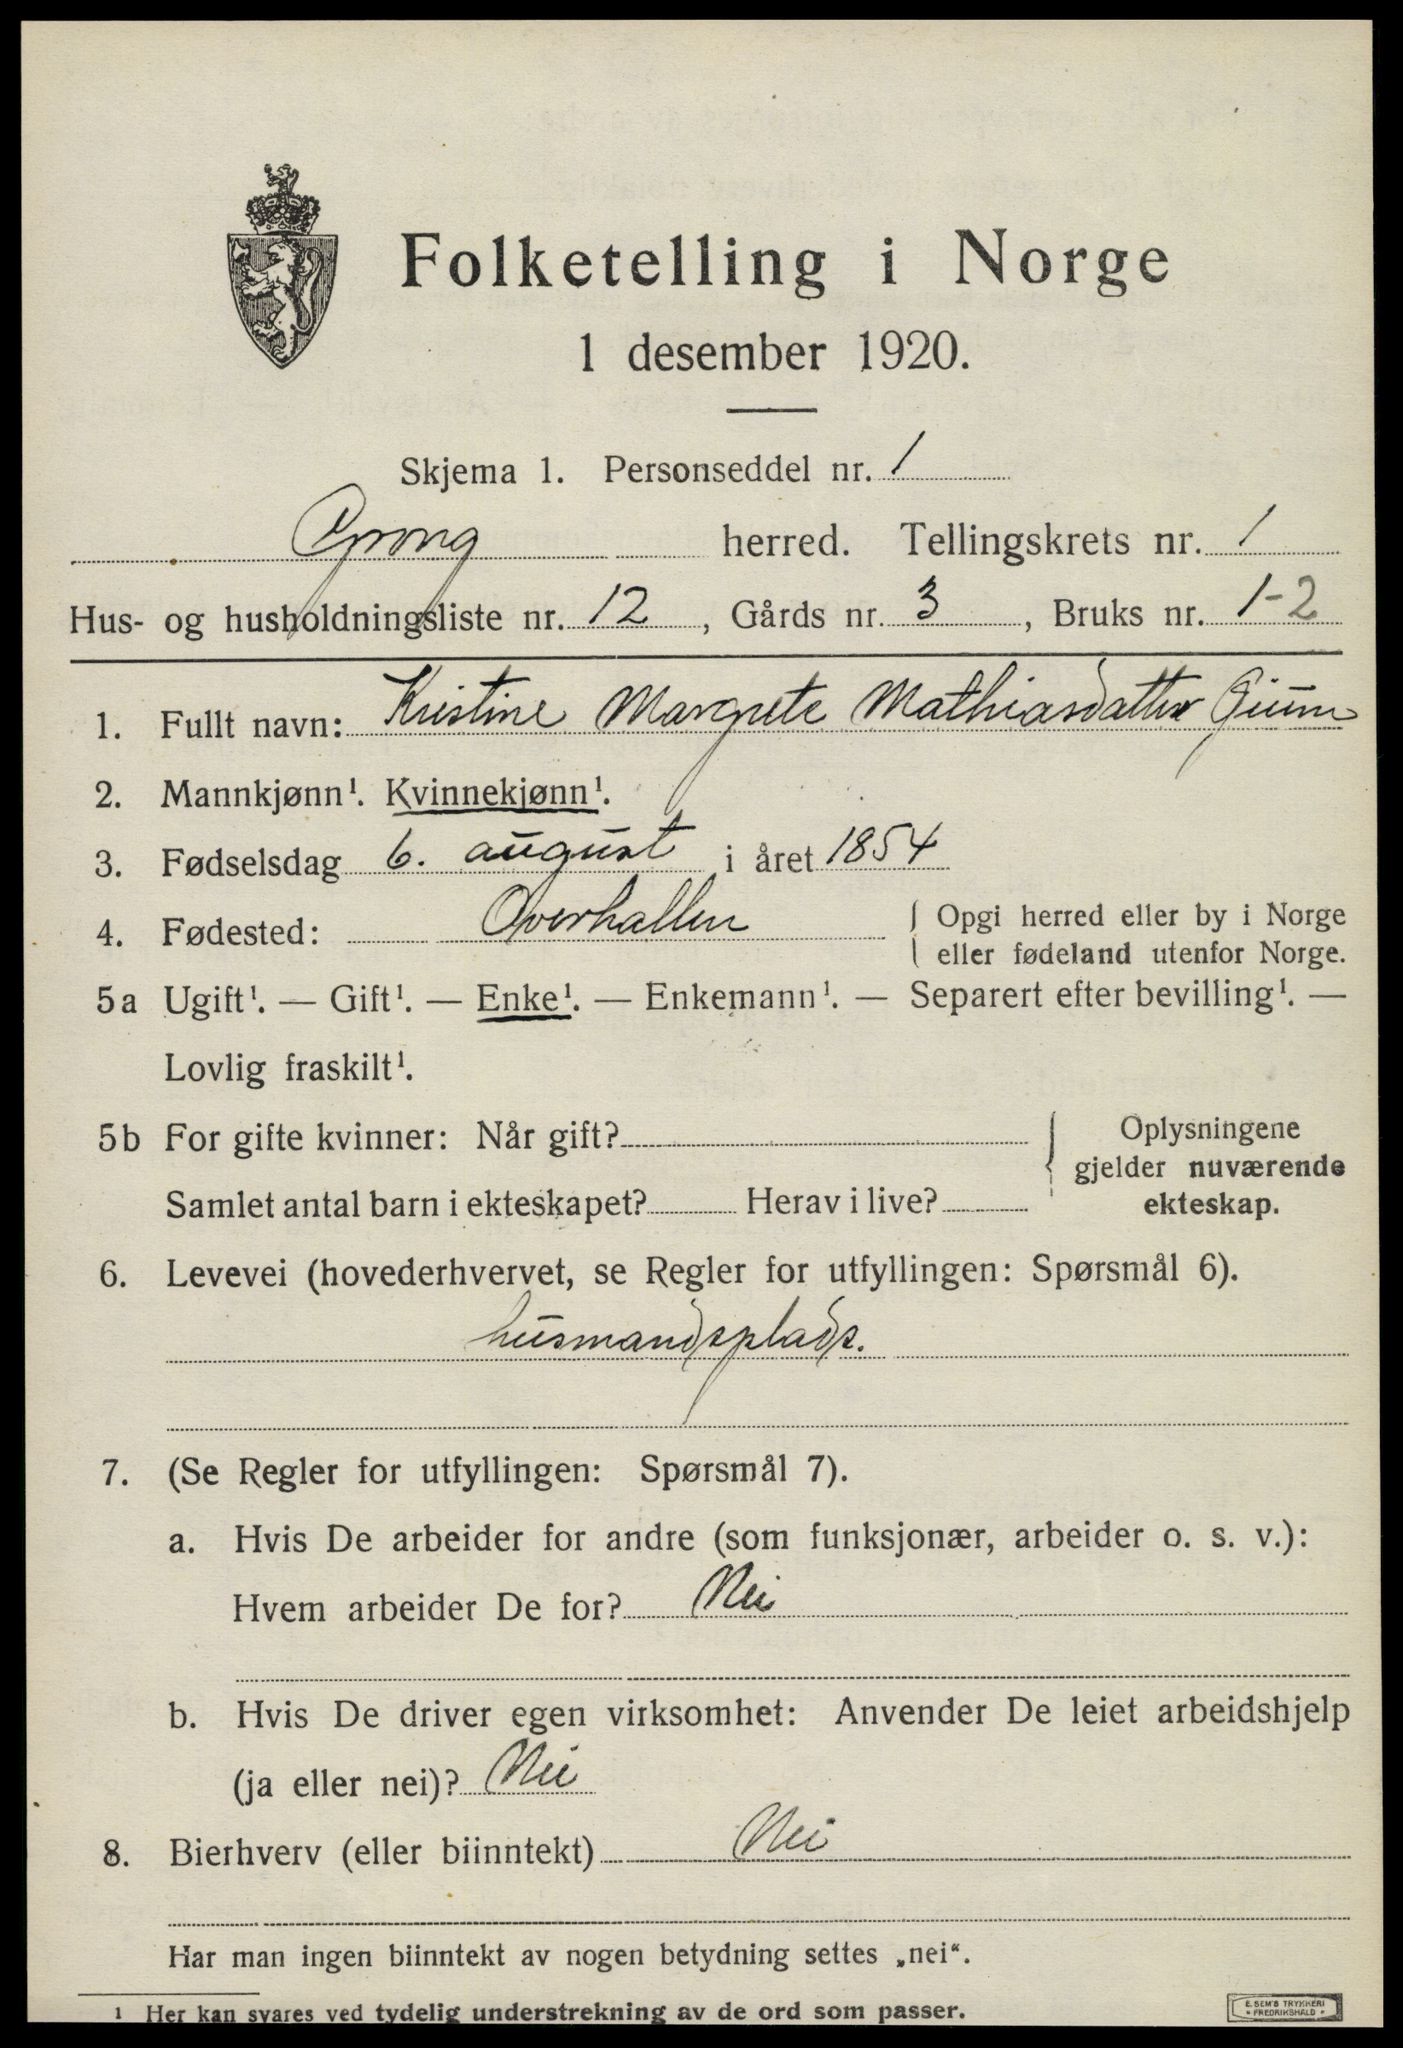 Folketelling i Norge
1 desember 1920.
Skjema 1. Personseddel nr. 1
Grong herred. Tellingskrets nr. 1
Hus- og husholdningsliste nr. 12, Gårds nr. 3, Bruks nr. 1-2
1. Fullt navn: Kristine Margrete Mathiasdatter Gium
2. Mannkjønn¹. Kvinnekjønn¹.
3. Fødselsdag 6. august i året 1854
4. Fødested: Overhallen { Opgi herred eller by i Norge
eller fødeland utenfor Norge.
5a Ugift¹. — Gift¹. — Enke¹. — Enkemann¹. — Separert efter bevilling¹. —
Lovlig fraskilt¹.
5b For gifte kvinner: Når gift? { Oplysningene
gjelder nuværende
Samlet antal barn i ekteskapet? Herav i live? ekteskap.
6. Levevei (hovederhvervet, se Regler for utfyllingen: Spørsmål 6).
husmandsplads.
7. (Se Regler for utfyllingen: Spørsmål 7).
a. Hvis De arbeider for andre (som funksjonær, arbeider o. s. v.):
Hvem arbeider De for? Nei
b. Hvis De driver egen virksomhet: Anvender De leiet arbeidshjelp
(ja eller nei)? Nei
8. Bierhverv (eller biinntekt) Nei
Har man ingen biinntekt av nogen betydning settes „nei“.
¹ Her kan svares ved tydelig understrekning av de ord som passer.
E. SEM'S TRYKKERI
FREDRIKSHALD